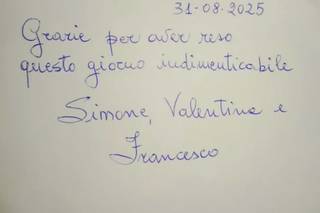 31-08-2025
Grazie per aver reso
questo giorno indimenticabile
Simone, Valentina e
Francesco